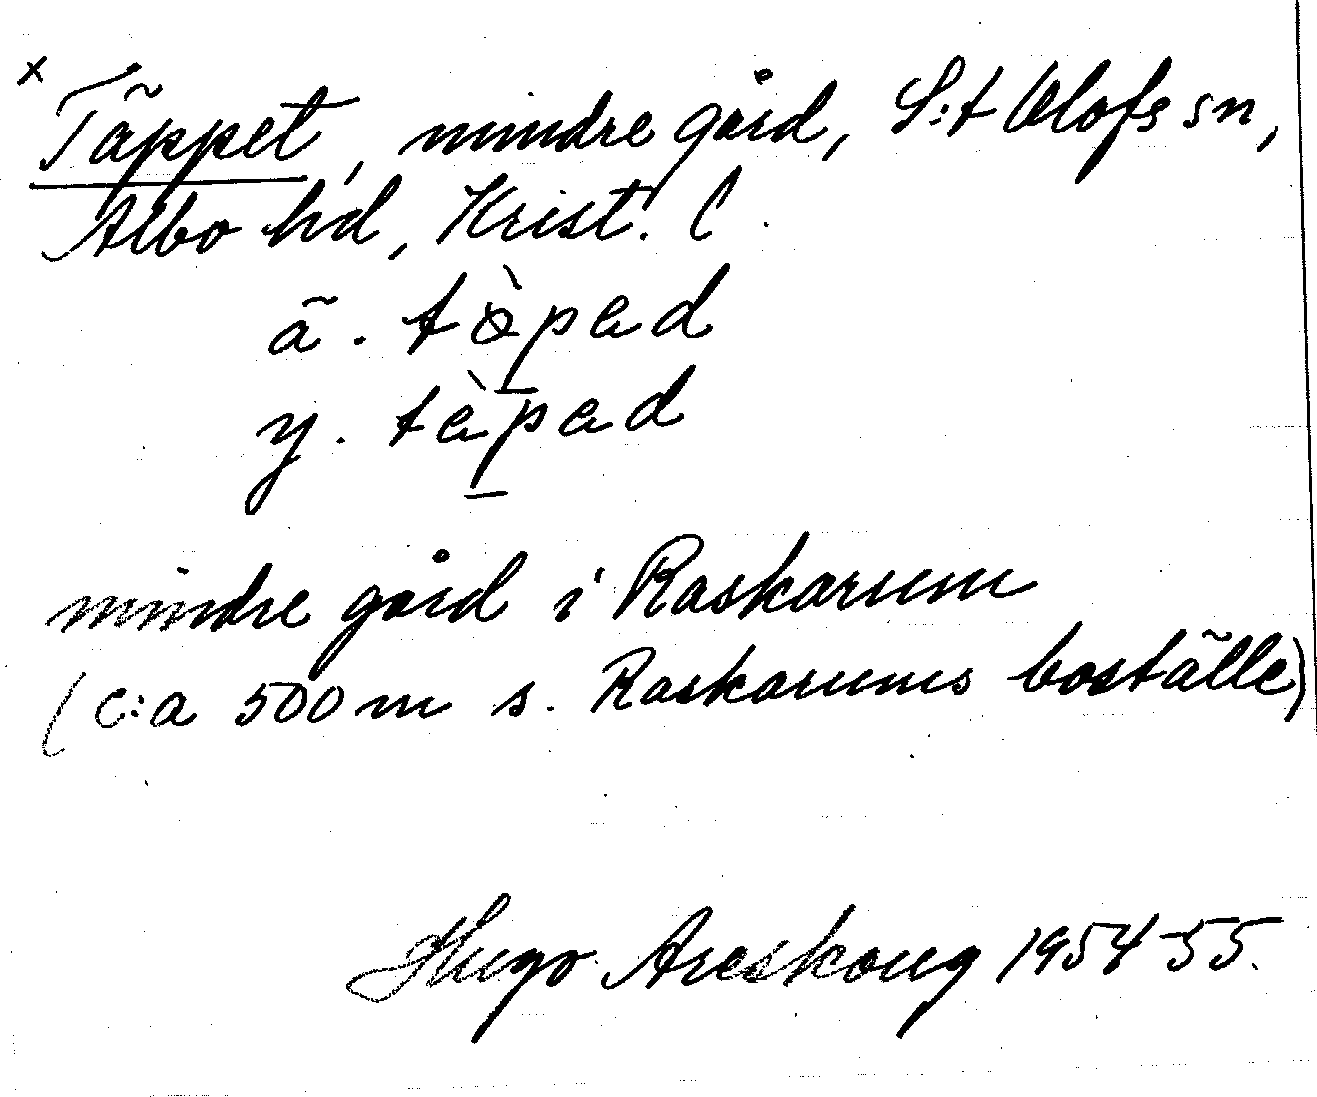 x Täppet, mindre gård, S:t Olofs sn,
Albo hd, Krist. l.
ä. tö̀p̠ad
y. tàp̠ad
mindre gård i Raskarum
(c:a 500 m s. Raskarums boställe)
Hugo Areskoug 1954-55.